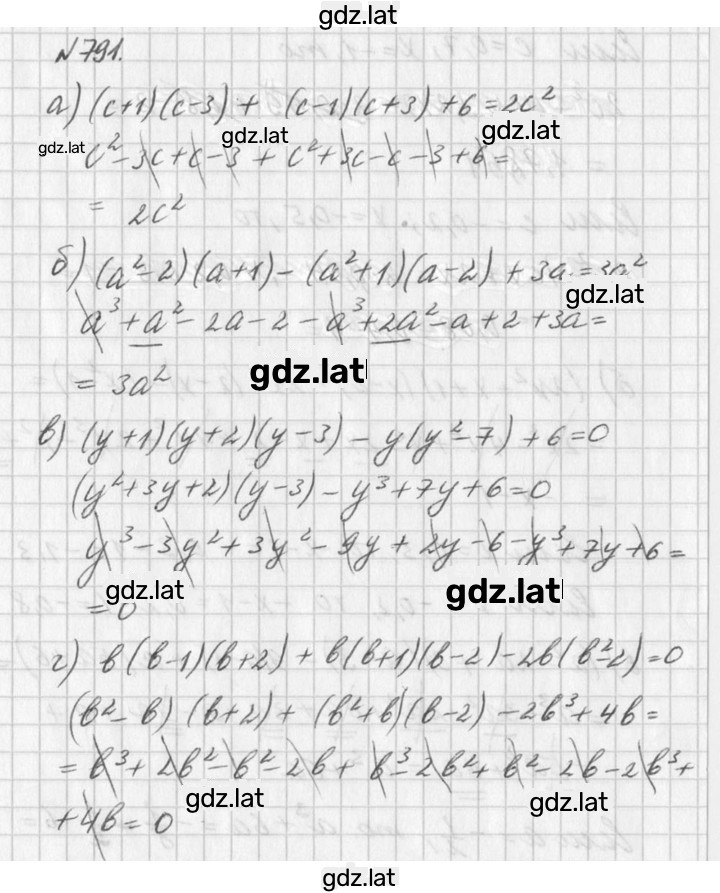 gdz.lat
№791.
а) (c+1)(c-3) + (c-1)(c+3) +6 = 2c²
gdz.lat gdz.lat gdz.lat
c² - 3c + c - 3 + c² + 3c - c - 3 + 6 =
= 2c²
б) (a²-2)(a+1) - (a²+1)(a-2) + 3a = 3a²
gdz.lat
a³ + a² - 2a - 2 - a³ + 2a² - a + 2 + 3a =
= 3a² gdz.lat
в) (y+1)(y+2)(y-3) - y(y²-7) + 6 = 0
(y²+3y+2)(y-3) - y³ + 7y + 6 = 0
y³ - 3y² + 3y² - 9y + 2y - 6 - y³ + 7y + 6 =
gdz.lat gdz.lat
= 0
г) b(b-1)(b+2) + b(b+1)(b-2) - 2b(b²-2) = 0
(b²-b)(b+2) + (b²+b)(b-2) - 2b³ + 4b =
= b³ + 2b² - b² - 2b + b³ - 2b² + b² - 2b - 2b³ +
gdz.lat gdz.lat
+ 4b = 0
gdz.lat